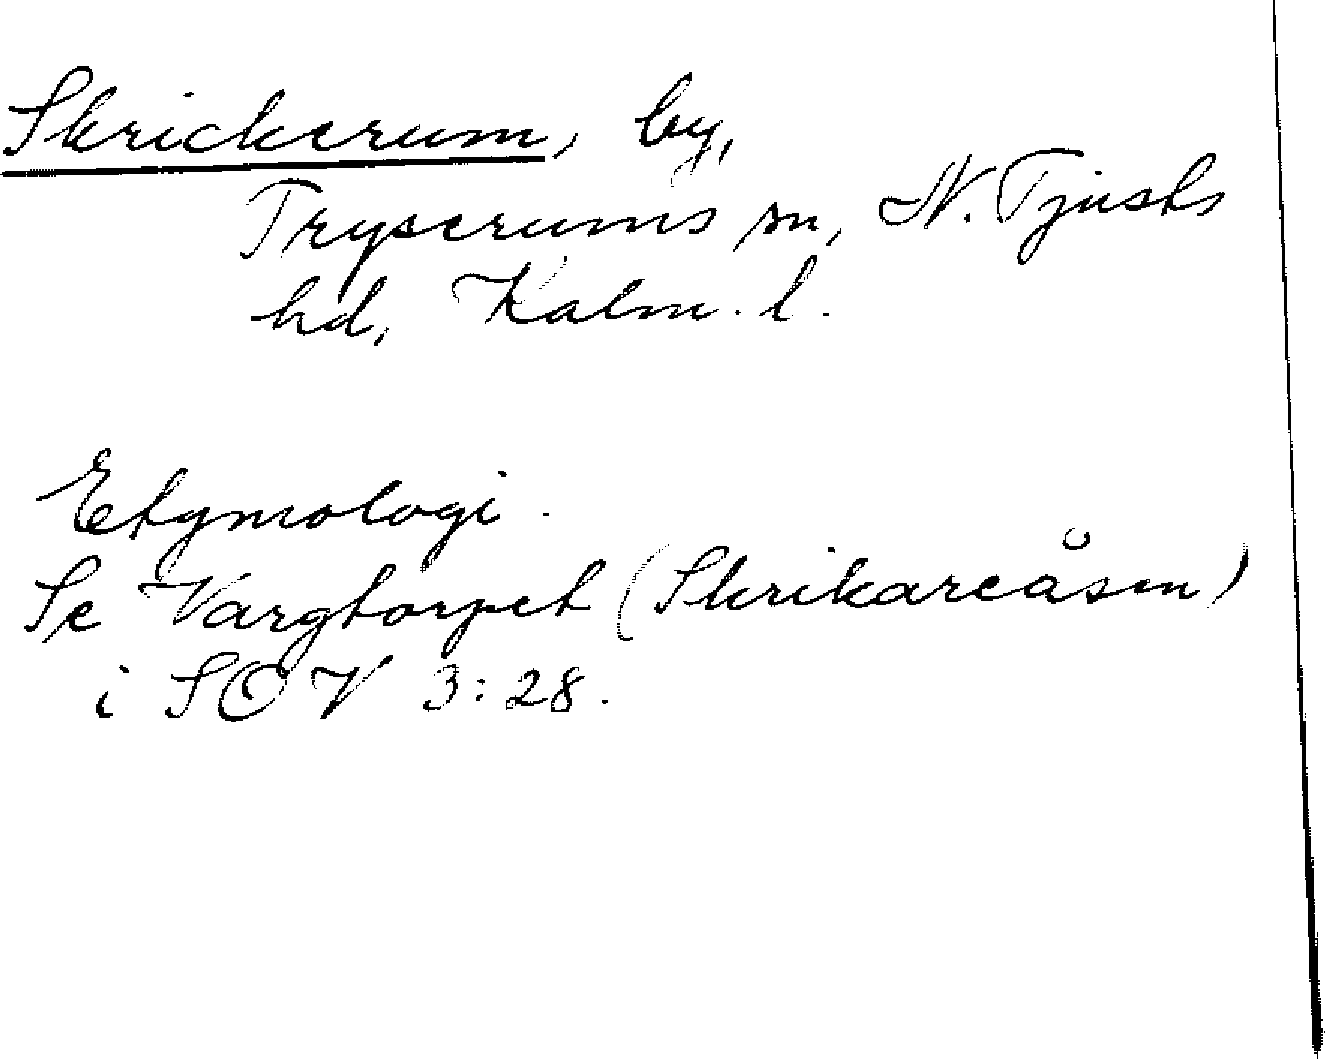 Skrickerum, by,
Tryserums sn, N. Tjusts
hd, Kalm. l.
Etymologi.
Se Vargtorpet (Skrikareåsen)
i SOV 3:28.